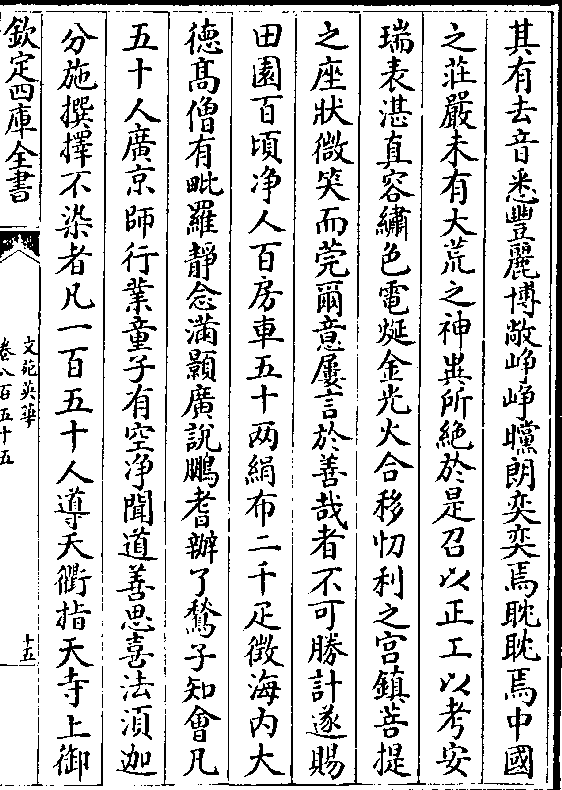 其有去音悉豐麗博敞崢崢矘朗奕奕焉眈眈焉中國
之莊嚴未有大荒之神異所絶於是召以正工以考安
瑞表湛真容繡色電烻金光火合移忉利之宫鎮菩提
之座狀微笑而莞爾意屢言於善哉者不可勝計遂賜
田園百頃净人百房車五十两絹布二千疋徴海内大
德髙僧有毗羅靜念滿顯廣說鵬耆辦了鶖子知會凡
五十人廣京師行業童子有空净聞道善思喜法湏迦
分施撰擇不染者凡一百五十人導天衢指天寺上御
欽定四庫全書
文苑英華
卷八百五十五
十五